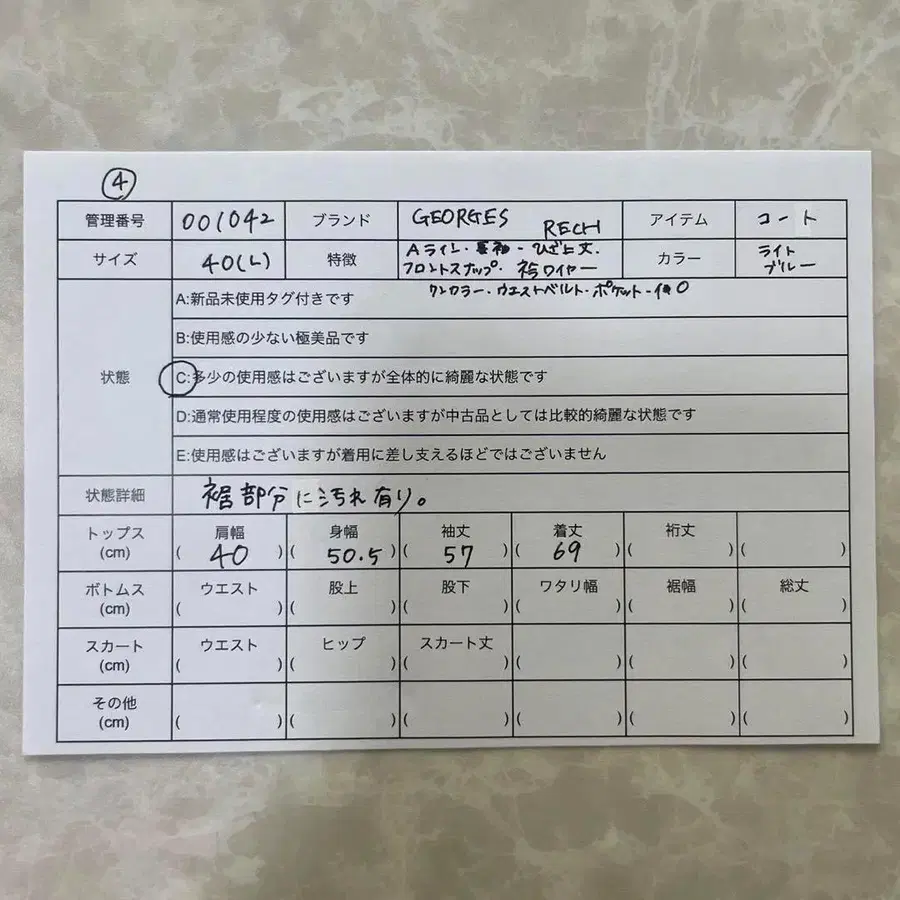 ④
管理番号 001042 ブランド GEORGES RECH アイテム コート
サイズ 40(L) 特徴 Aライン・長袖・ひざ上丈・ カラー ライト
フロントスナップ・衿ワイヤー ブルー
ワンカラー・ウエストベルト・ポケット・
状態
A:新品未使用タグ付きです
B:使用感の少ない極美品です
C:多少の使用感はございますが全体的に綺麗な状態です
D:通常使用程度の使用感はございますが中古品としては比較的綺麗な状態です
E:使用感はございますが着用に差し支えるほどではございません
状態詳細 裾部分に汚れ有り。
トップス 肩幅 身幅 袖丈 着丈 裄丈
(cm) ( 40 ) ( 50.5 ) ( 57 ) ( 69 ) ( ) ( )
ボトムス ウエスト 股上 股下 ワタリ幅 裾幅 総丈
(cm) ( ) ( ) ( ) ( ) ( ) ( )
スカート ウエスト ヒップ スカート丈
(cm) ( ) ( ) ( ) ( ) ( ) ( )
その他
(cm) ( ) ( ) ( ) ( ) ( ) ( )